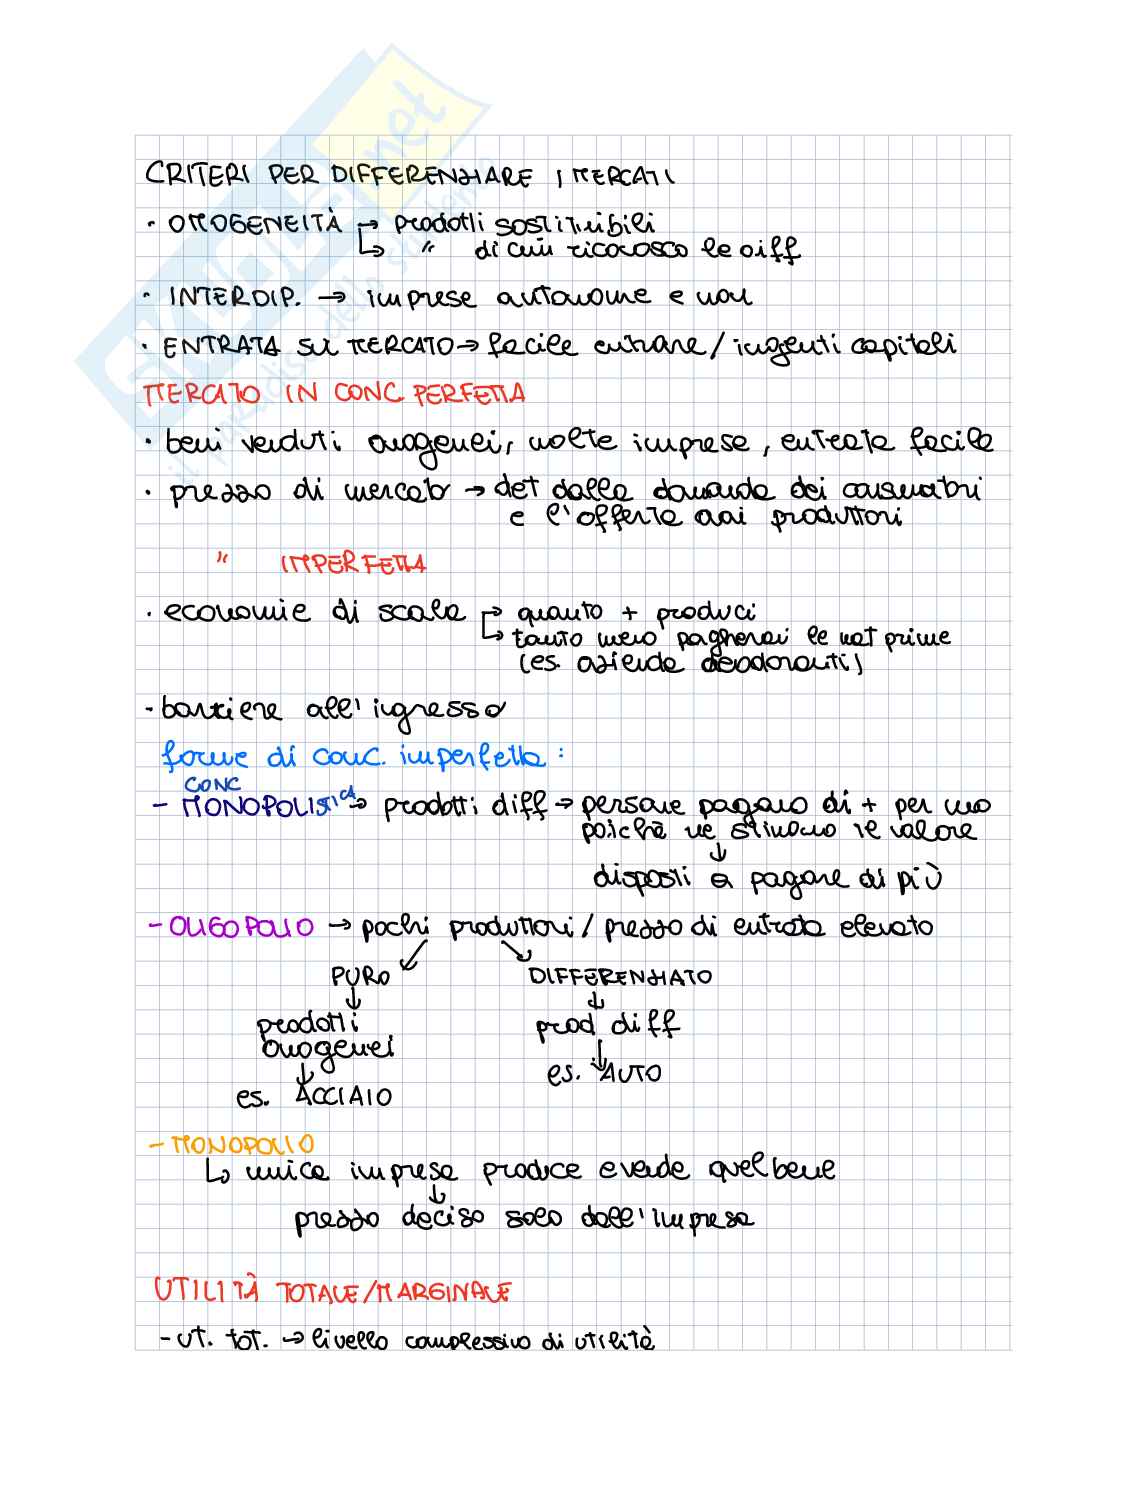 CRITERI PER DIFFERENZIARE I MERCATI
· OMOGENEITÀ → prodotti sostituibili
↳ " di cui riconosco le diff
· INTERDIP. → imprese autonome e non
· ENTRATA SU MERCATO → facile entrare / ingenti capitali
MERCATO IN CONC. PERFETTA
· beni venduti omogenei, molte imprese, entrata facile
· prezzo di mercato → det dalla domanda dei consumatori
e l'offerta dai produttori
" IMPERFETTA
· economie di scala → quanto + produci
↳ tanto meno pagherai le mat prime
(es. azienda deodoranti)
· barriere all'ingresso
forme di conc. imperfetta:
CONC
- MONOPOLISTICA → prodotti diff → persone pagano di + per uno
poichè ne stimano il valore
↓
disposti a pagare di più
- OLIGOPOLIO → pochi produttori / prezzo di entrata elevato
PURO DIFFERENZIATO
prodotti prod diff
omogenei
es. AUTO
es. ACCIAIO
- MONOPOLIO
↳ unica impresa produce e vende quel bene
prezzo deciso solo dall'impresa
UTILITÀ TOTALE/MARGINALE
- ut. tot. → livello complessivo di utilità
SKUOLA.net
il paradiso dello studente